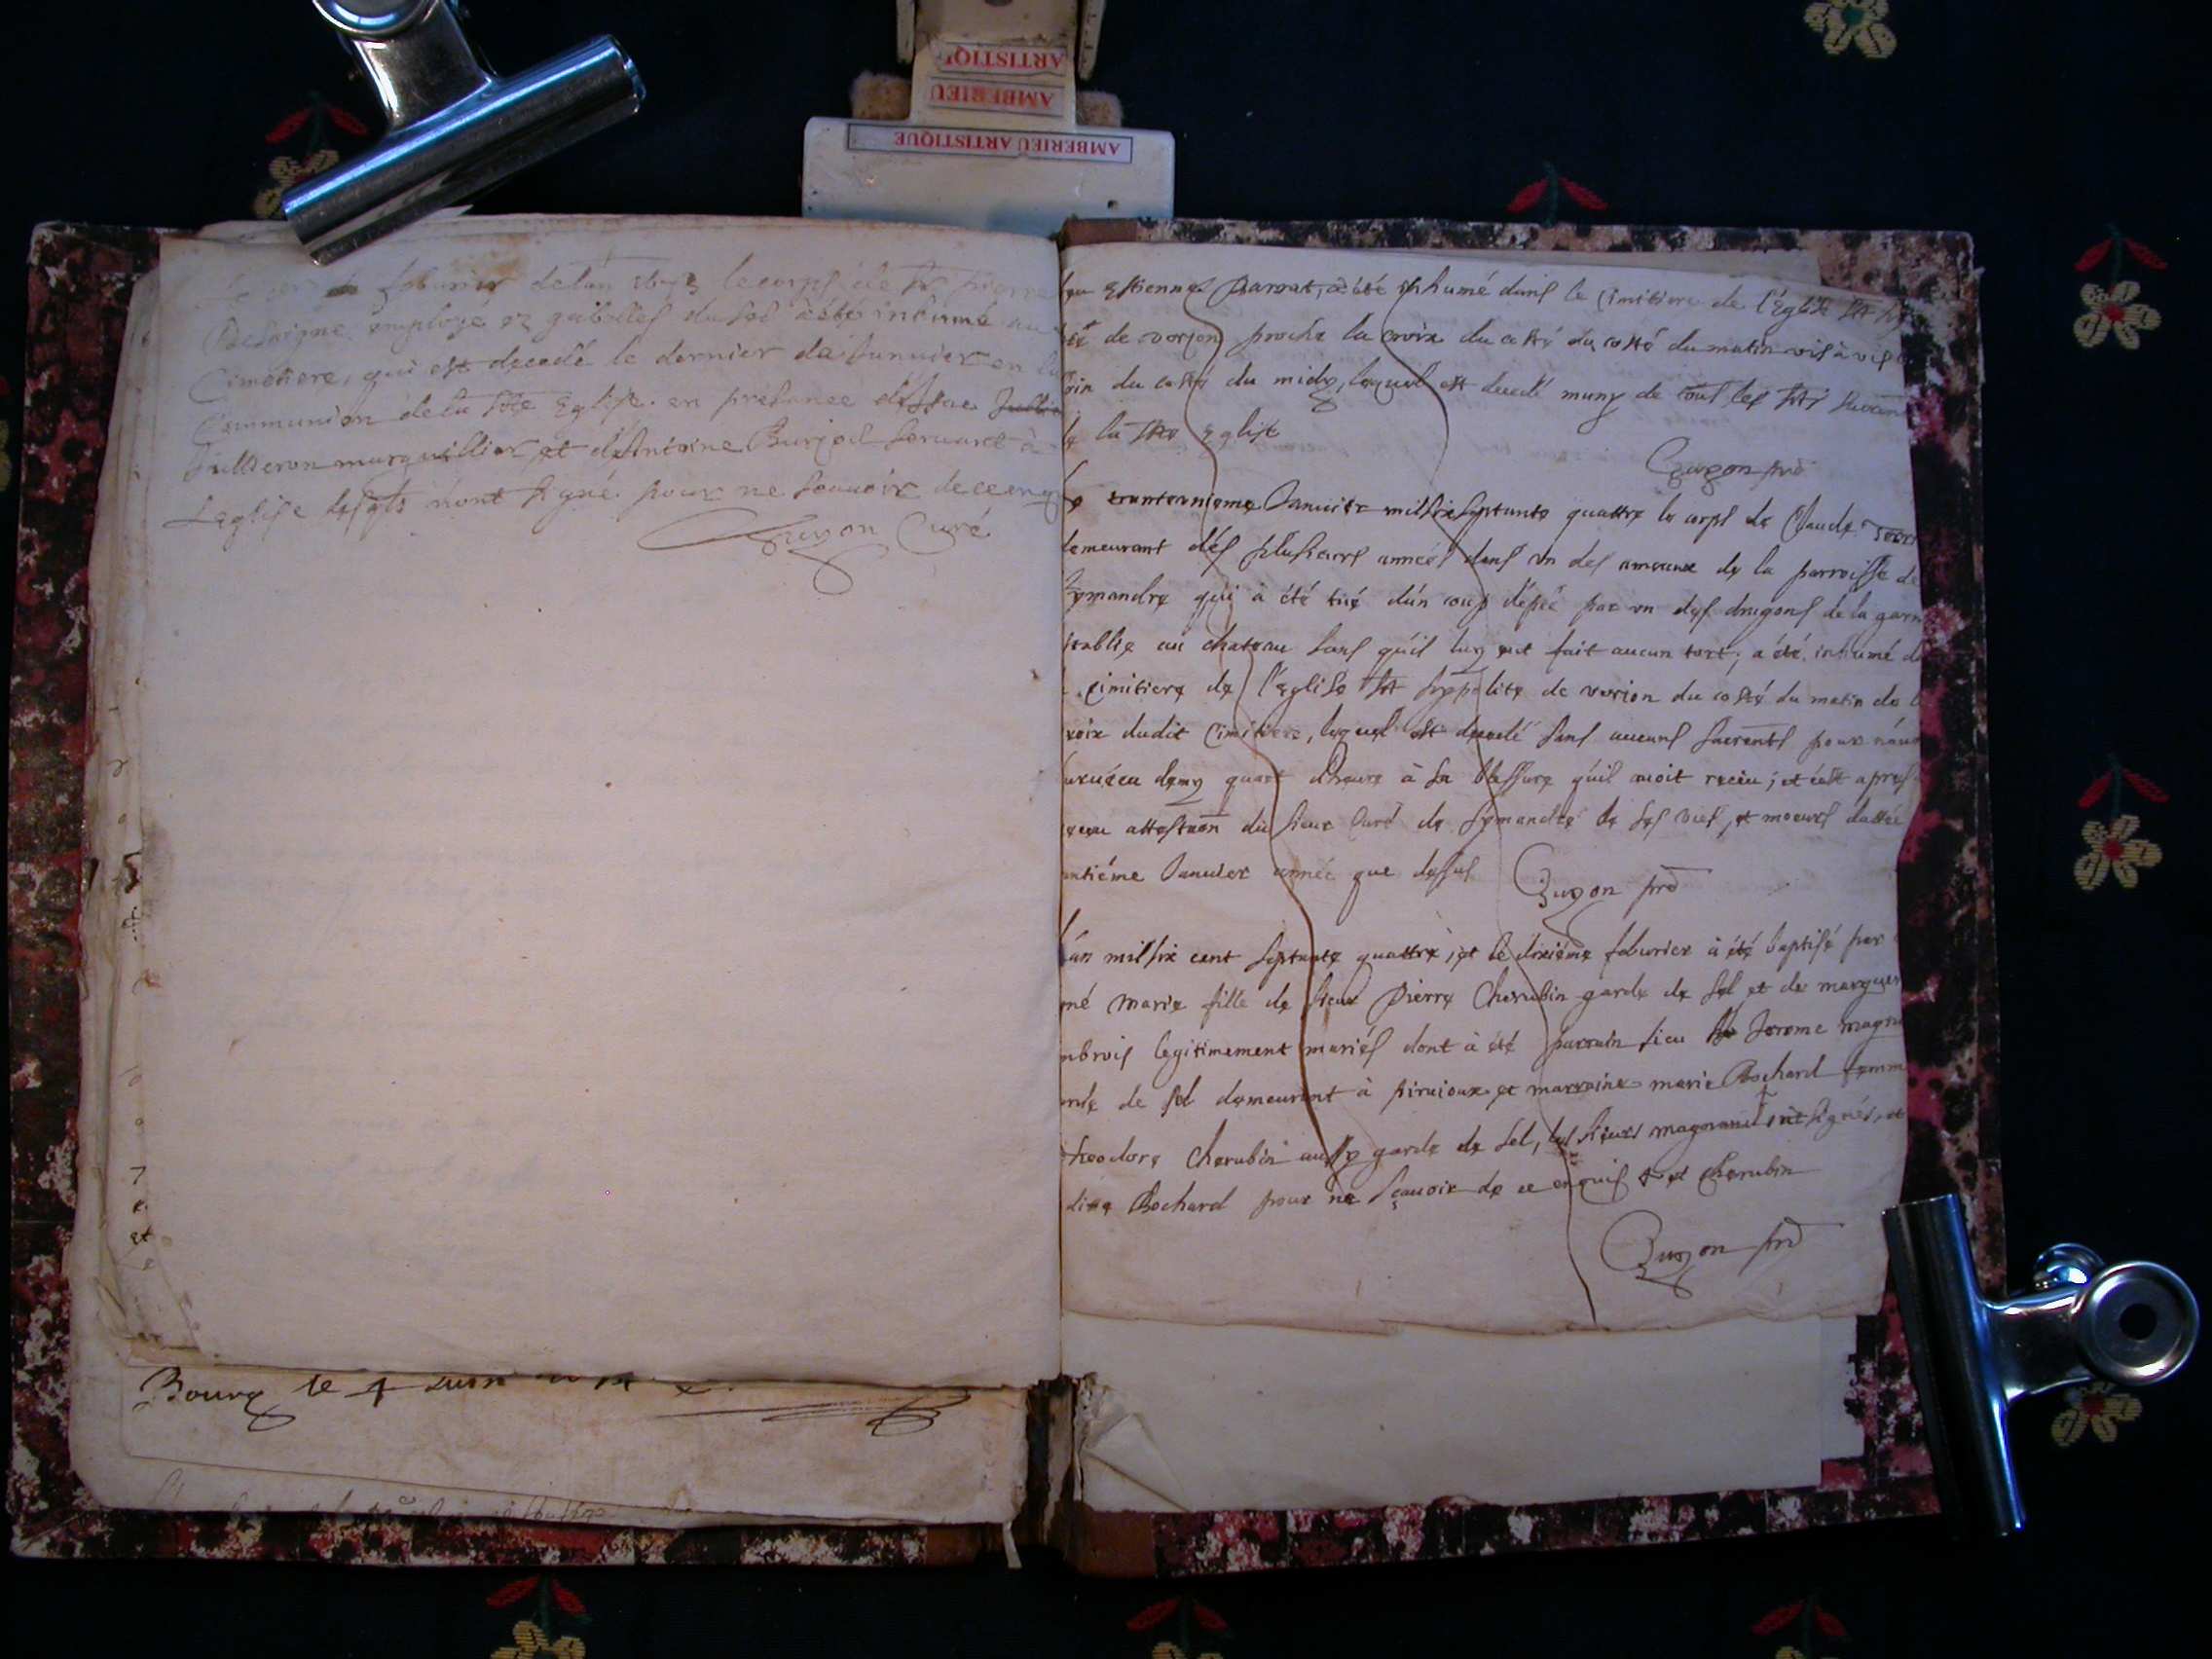 ARTISTIQ
AMBERIEU
AMBERIEU ARTISTIQUE
le corps de Sr pierre
employé ez gabelles du sel à été inhumé au
Cimetiere, qui est decedé le dernier de Januier en la
Communion de la Ste Eglise en presence
marguillier et d'Antoine Burjod seruant à
L'eglise n'ont signé pour ne scauoir de ce enq
Guyon Curé
Bourg le 4 Juin
Estienne Parrat, a été inhumé dans le Cimitiere de l'Eglise St hy
de verjon proche la croix du costé du costé du matin vis à vis
du costé du midy, lequel est decedé muny de tous les
la Ste Eglise
Guyon prê
trenteunieme Januier mil six septante quattre le corps de Claude
demeurant dés plusieurs années dans vn des ameaux de la parroisse de
qui à été tué d'un coup d'épée par vn des dragons de la garn
establie au chateau sans qu'il luy eut fait aucun tort; a été inhumé d
Cimitiere de l'Eglise St hyppolite de verion du costé du matin de l
croix dudit Cimitiere, lequel est decedé sans aucuns sacrents pour
demy quart d'heure à sa blessure qu'il auoit receu; et c'est apres
du sieur Curé de de ses vies, et moeurs dattée
Januier année que dessus
Guyon prê
L'an mil six cent septante quattre, et le dixiéme feburier à été baptisé par
né Marie fille de sieur Pierre Cherubin garde de sel et de marguer
mbrois legitimement mariés dont à été parrain sieur Jerome magn
de sel demeurant à piraioux et marraine marie Bochard femm
theodore Cherubin aussy garde de sel, les sieurs signés, et
ditte Bochard pour ne sçauoir de ce enquis et cherubin
Guyon prê